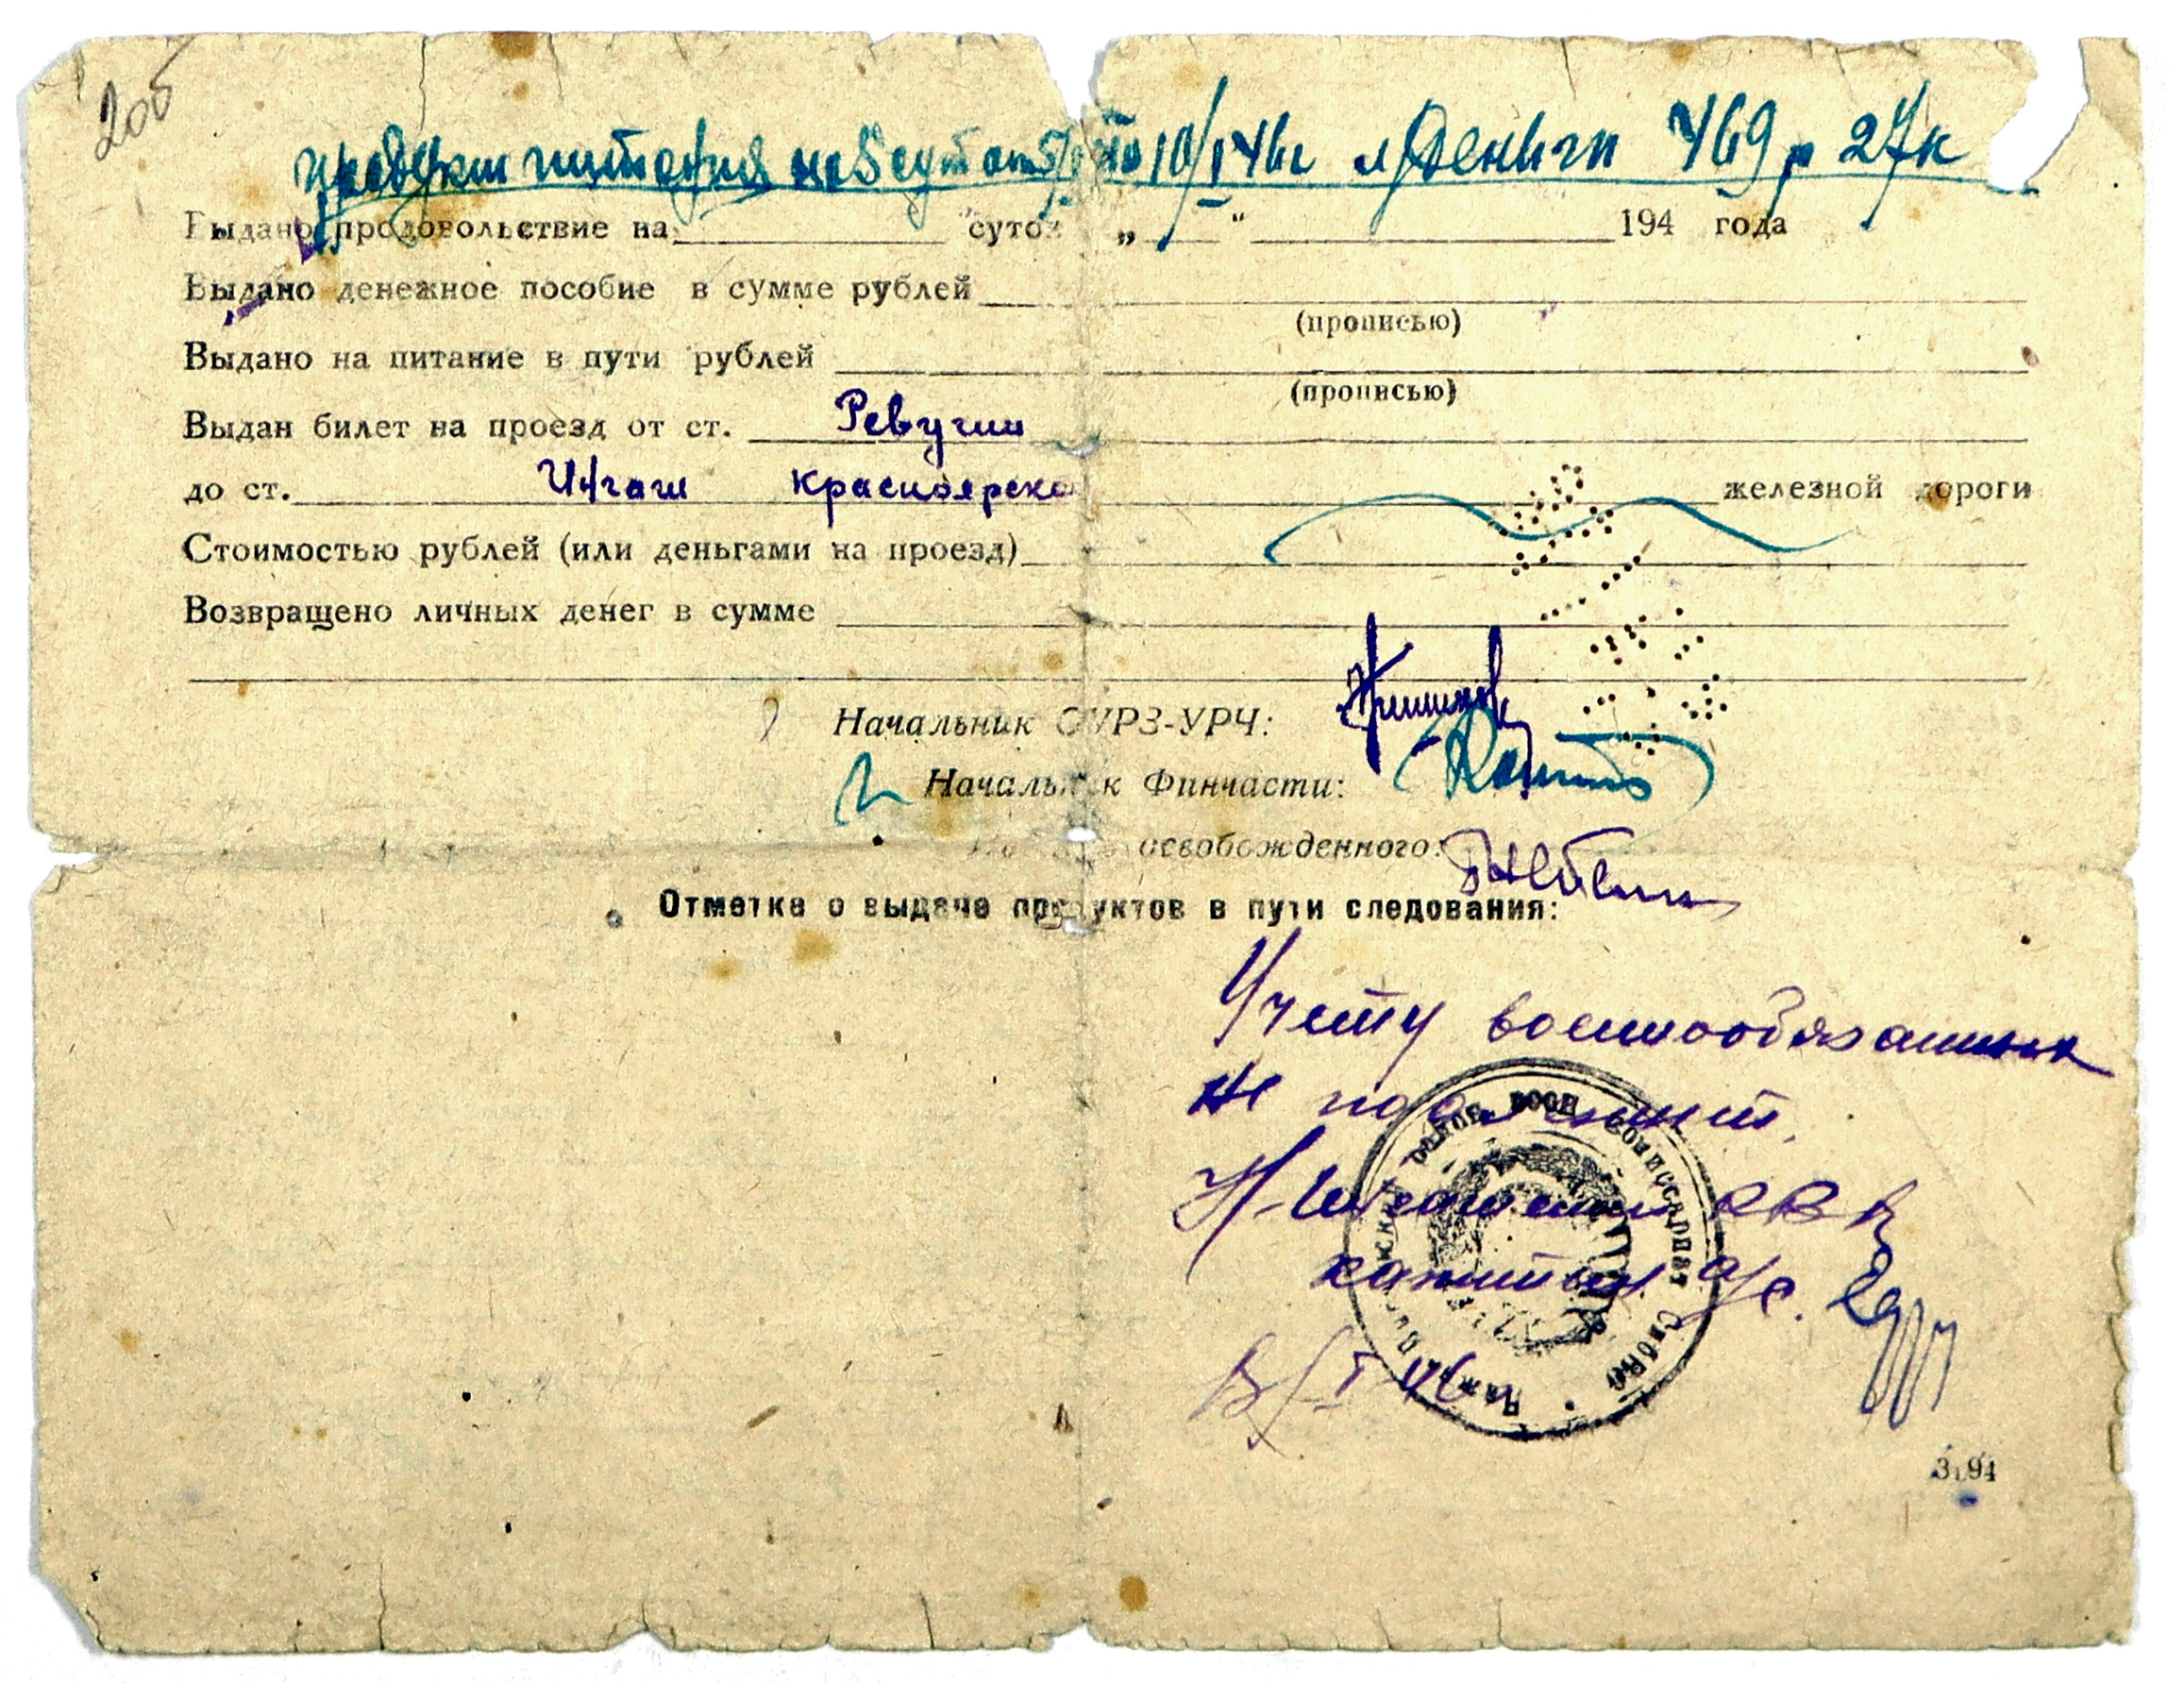 20об
продукты питания на 5 сут от 5/I по 10/I 46г и деньги 469 р 27к
Выдано продовольствие на суток „ “ 194 года
Выдано денежное пособие в сумме рублей
(прописью)
Выдано на питание в пути рублей
(прописью)
Выдан билет на проезд от ст. Ревучии
до ст. Ингаш Красноярско железной дороги
Стоимостью рублей (или деньгами на проезд)
Возвращено личных денег в сумме
Начальник ОУРЗ-УРЧ:
Начальник Финчасти:
освобожденного:
Отметка о выдаче продуктов в пути следования:
Учету военнообязанных
не подлежит.
Н-Ингашский РВК
капитан а/с.
I 46г
3.94